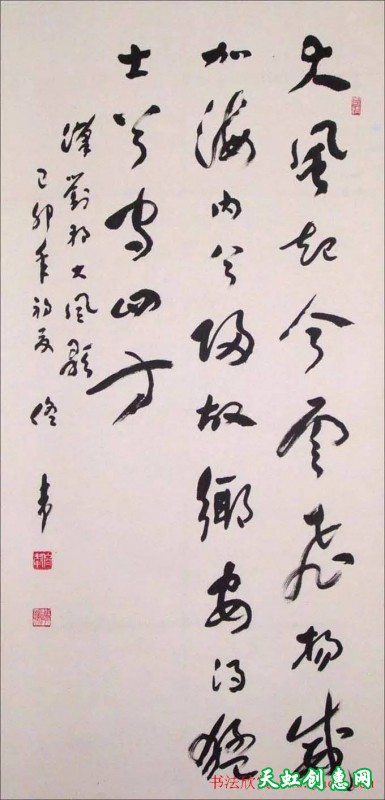 大風起兮雲飛揚威
加海内兮歸故鄉安得猛
士兮守四方
漢劉邦大風歌
己卯年初夏 佟韦
书法欣
天虹创惠网